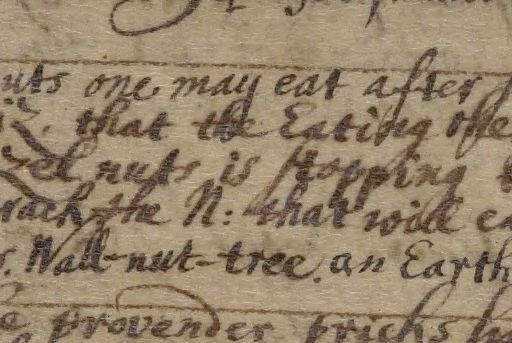 uts one may eat after
that the Eating the
zel nuts is stopping
rack the N: that will ea
Wall-nut-tree. an Earth
e provender pricks hi